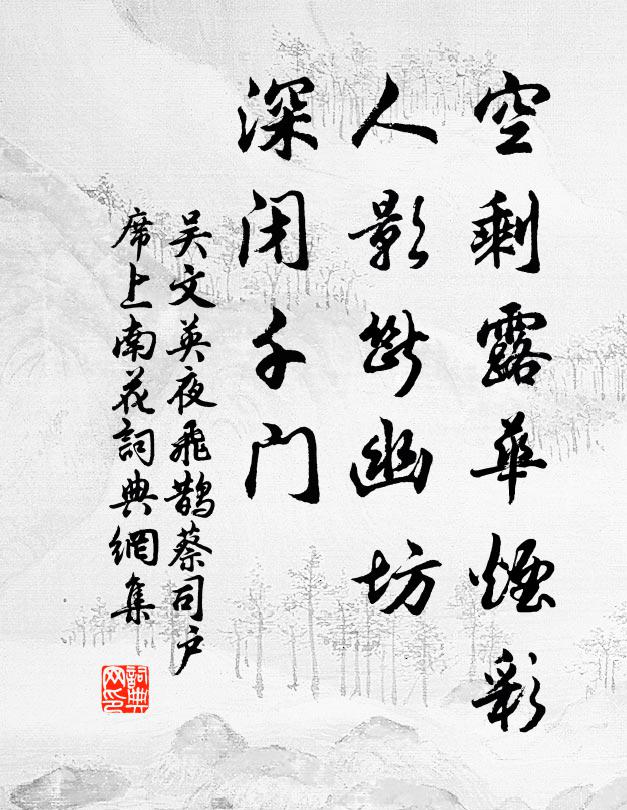 空剩露華煙彩
人影斷幽坊
深闭千门
吴文英夜飛鵲蔡司户
席上南花詞典網集
詞典
网印